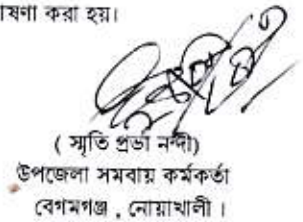 ষণা করা হয়।
( স্মৃতি প্রভা নন্দী)
উপজেলা সমবায় কর্মকর্তা
বেগমগঞ্জ , নোয়াখালী ।